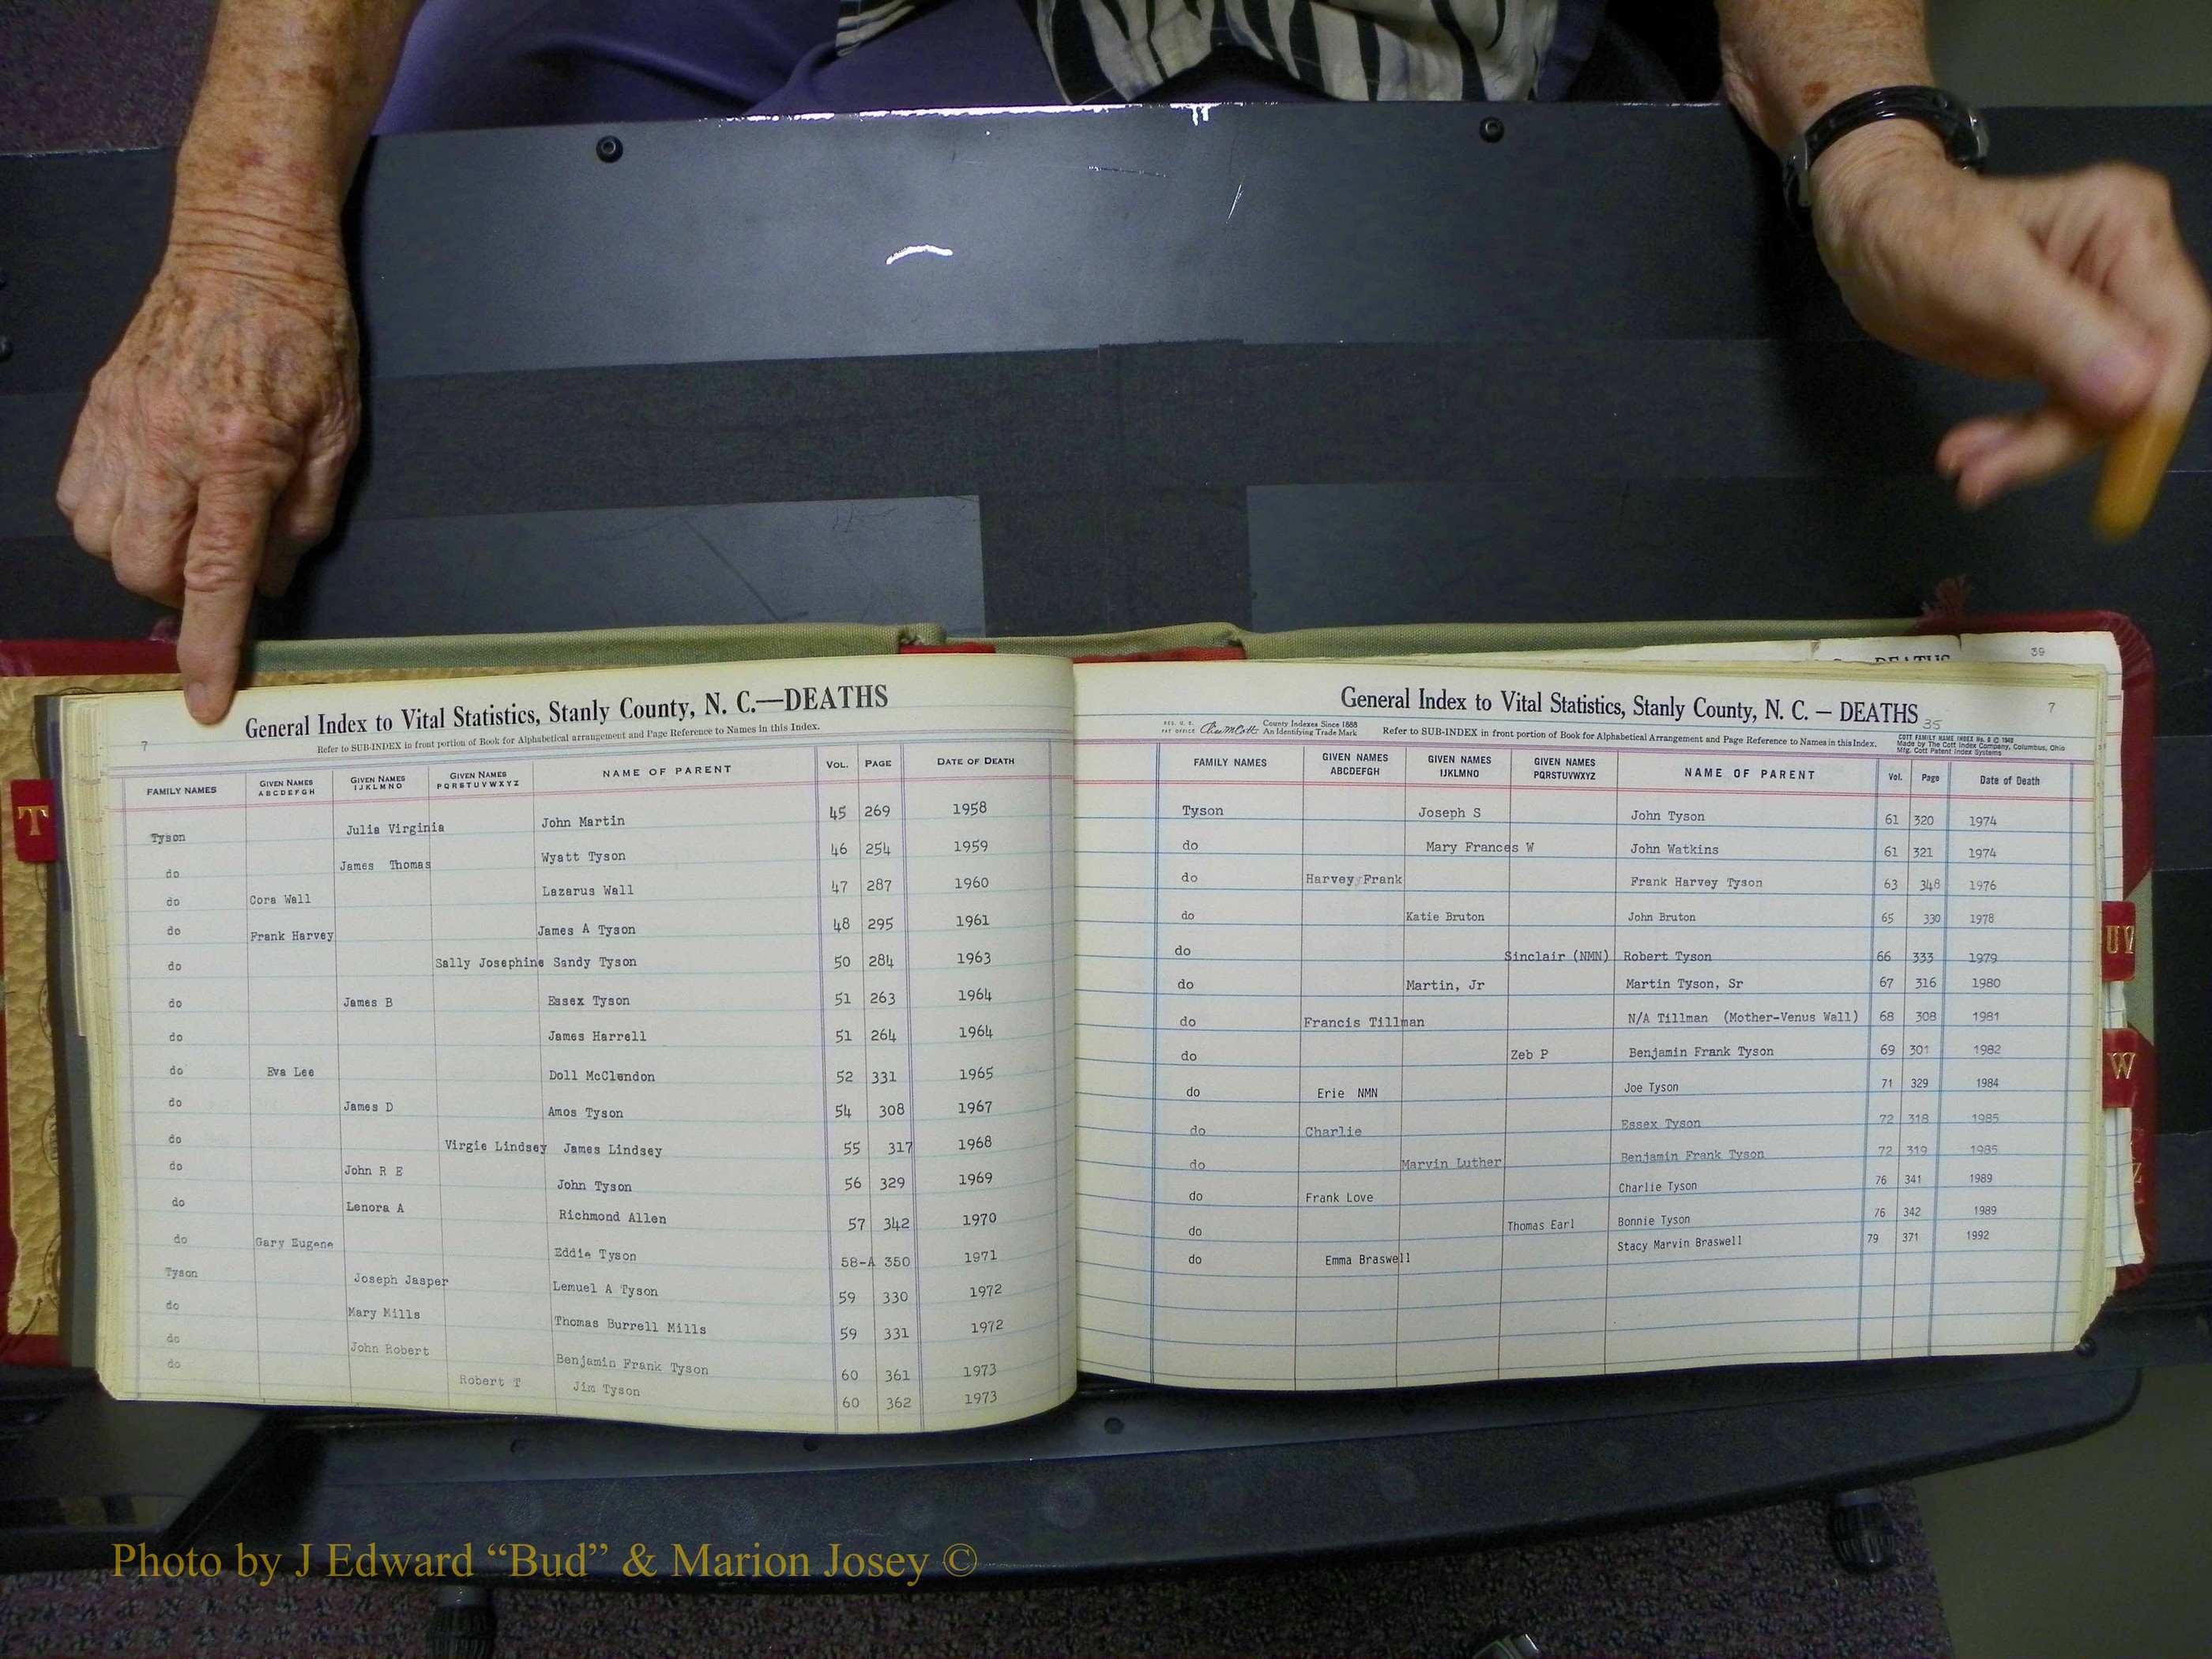 General Index to Vital Statistics, Stanly County, N. C.—DEATHS
Refer to SUB-INDEX in front portion of Book for Alphabetical arrangement and Page Reference to Names in this Index.
7
FAMILY NAMES GIVEN NAMES ABCDEFGH GIVEN NAMES IJKLMNO GIVEN NAMES PQRSTUVWXYZ NAME OF PARENT VOL. PAGE DATE OF DEATH
Tyson Julia Virginia John Martin 45 269 1958
do James Thomas Wyatt Tyson 46 254 1959
do Cora Wall Lazarus Wall 47 287 1960
do Frank Harvey James A Tyson 48 295 1961
do Sally Josephine Sandy Tyson 50 284 1963
do James B Essex Tyson 51 263 1964
do James Harrell 51 264 1964
do Eva Lee Doll McClendon 52 331 1965
do James D Amos Tyson 54 308 1967
do Virgie Lindsey James Lindsey 55 317 1968
do John R E John Tyson 56 329 1969
do Lenora A Richmond Allen 57 342 1970
do Gary Eugene Eddie Tyson 58-A 350 1971
Tyson Joseph Jasper Lemuel A Tyson 59 330 1972
do Mary Mills Thomas Burrell Mills 59 331 1972
do John Robert Benjamin Frank Tyson 60 361 1973
do Robert T Jim Tyson 60 362 1973
T
DEATHS
39
General Index to Vital Statistics, Stanly County, N. C. — DEATHS
35
7
REG. U. S. PAT OFFICE County Indexes Since 1888 An Identifying Trade Mark
Refer to SUB-INDEX in front portion of Book for Alphabetical Arrangement and Page Reference to Names in this Index.
COTT FAMILY NAME INDEX No. 8 © 1949
Made by The Cott Index Company, Columbus, Ohio
Mfg. Cott Patent Index Systems
FAMILY NAMES GIVEN NAMES ABCDEFGH GIVEN NAMES IJKLMNO GIVEN NAMES PQRSTUVWXYZ NAME OF PARENT Vol. Page Date of Death
Tyson Joseph S John Tyson 61 320 1974
do Mary Frances W John Watkins 61 321 1974
do Harvey Frank Frank Harvey Tyson 63 348 1976
do Katie Bruton John Bruton 65 330 1978
do Sinclair (NMN) Robert Tyson 66 333 1979
do Martin, Jr Martin Tyson, Sr 67 316 1980
do Francis Tillman N/A Tillman (Mother-Venus Wall) 68 308 1981
do Zeb P Benjamin Frank Tyson 69 301 1982
do Erie NMN Joe Tyson 71 329 1984
do Charlie Essex Tyson 72 318 1985
do Marvin Luther Benjamin Frank Tyson 72 319 1985
do Frank Love Charlie Tyson 76 341 1989
do Thomas Earl Bonnie Tyson 76 342 1989
do Emma Braswell Stacy Marvin Braswell 79 371 1992
UV
W
Photo by J Edward “Bud” & Marion Josey ©